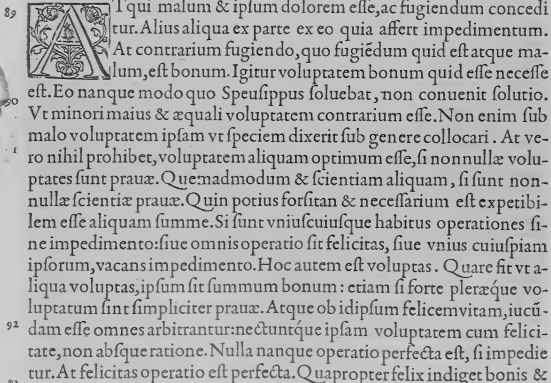 89 AT qui malum & ipſum dolorem eſſe, ac fugiendum concedi
tur. Alius aliqua ex parte ex eo quia affert impedimentum.
At contrarium fugiendo, quo fugiẽdum quid eſt atque ma-
lum, eſt bonum. Igitur voluptatem bonum quid eſſe neceſſe
90 eſt. Eo nanque modo quo Speuſippus ſoluebat, non conuenit ſolutio.
Vt minori maius & æquali voluptatem contrarium eſſe. Non enim ſub
malo voluptatem ipſam vt ſpeciem dixerit ſub genere collocari. At ve-
ro nihil prohibet, voluptatem aliquam optimum eſſe, ſi nonnullæ volu-
ptates ſunt prauæ. Quemadmodum & ſcientiam aliquam, ſi ſunt non-
nullæ ſcientiæ prauæ. Quin potius forſitan & neceſſarium eſt expetibi-
lem eſſe aliquam ſumme. Si ſunt vniuſcuiuſque habitus operationes ſi-
ne impedimento: ſiue omnis operatio ſit felicitas, ſiue vnius cuiuſpiam
ipſorum, vacans impedimento. Hoc autem eſt voluptas. Quare fit vt a-
liqua voluptas, ipſum ſit ſummum bonum: etiam ſi forte pleræque vo-
luptatum ſint ſimpliciter prauæ. Atque ob idipſum felicem vitam, iucũ-
92 dam eſſe omnes arbitrantur: nectuntque ipſam voluptatem cum felici-
tate, non abſque ratione. Nulla nanque operatio perfecta eſt, ſi impedie
tur. At felicitas operatio eſt perfecta. Quapropter felix indiget bonis &